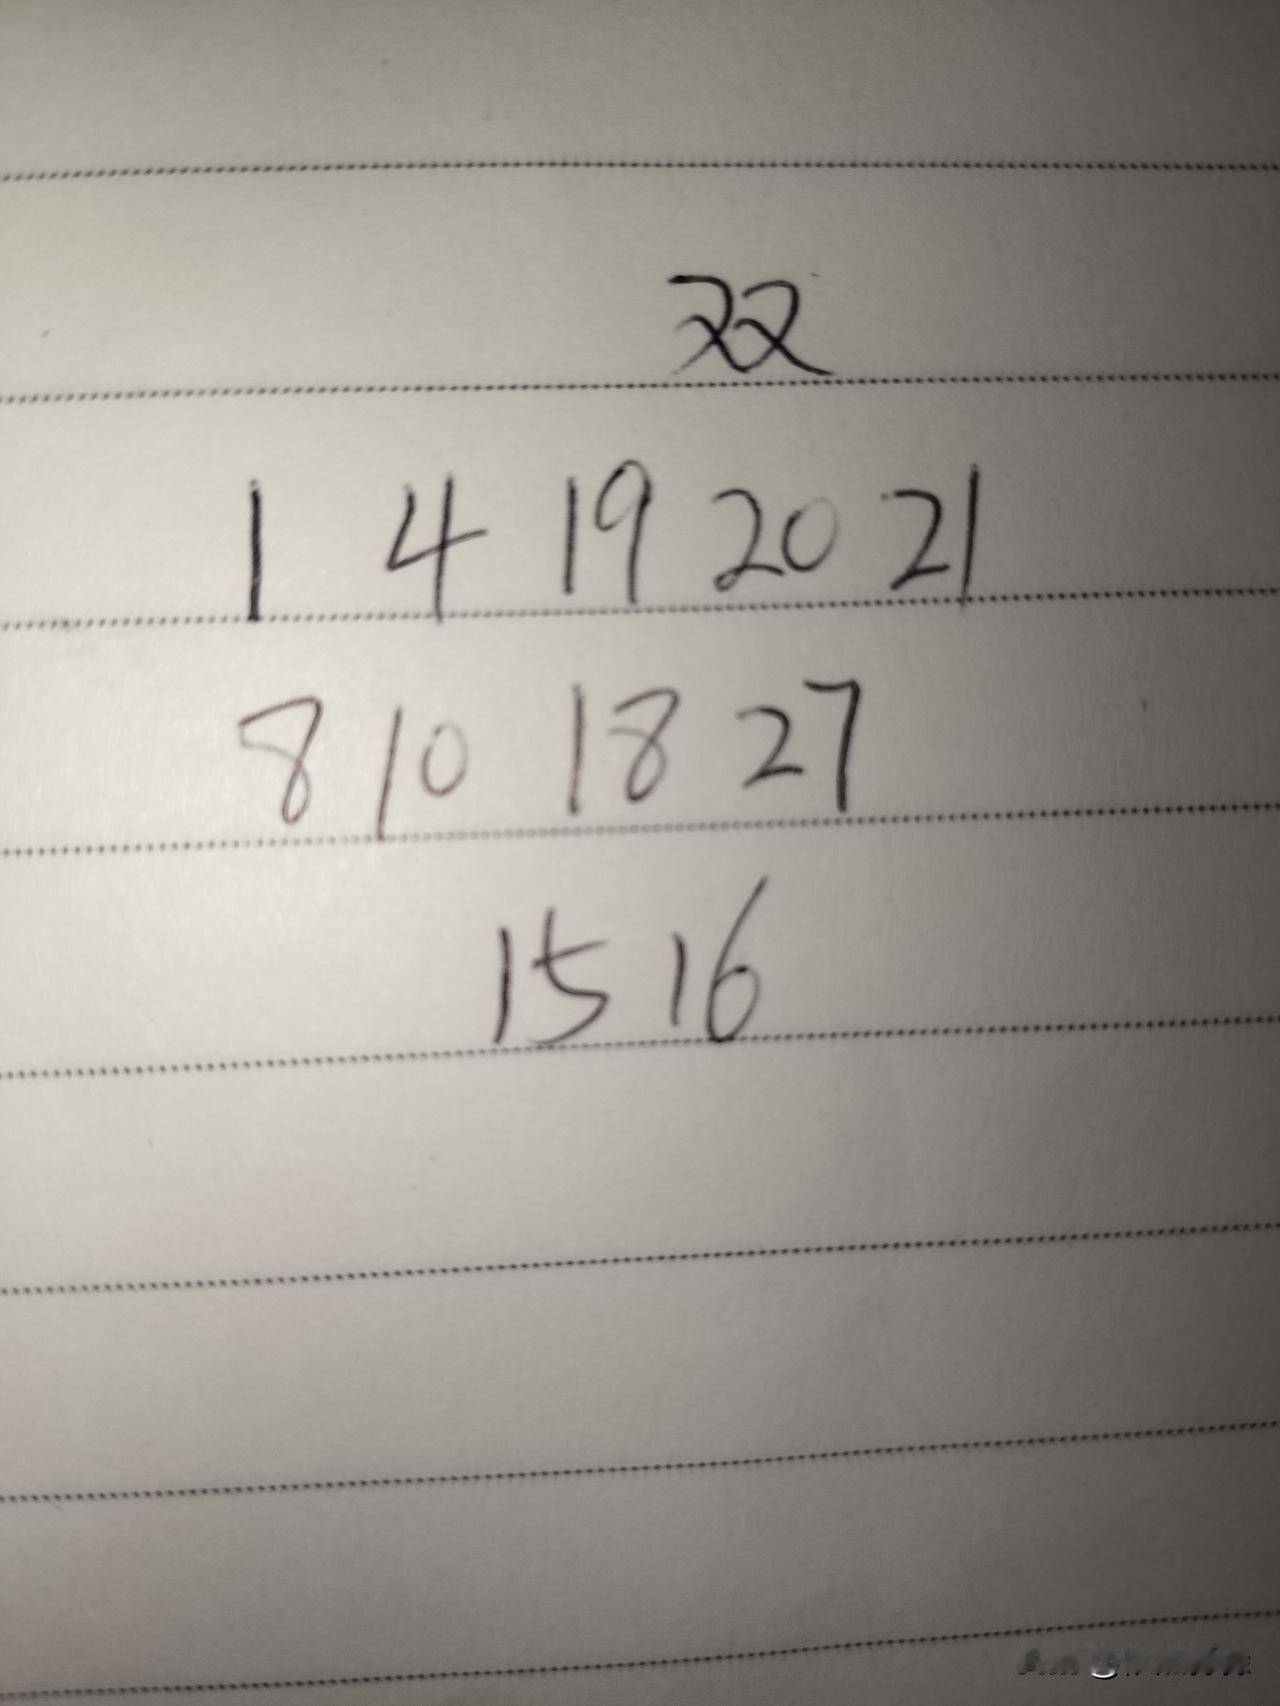 双
1 4 19 20 21
8 10 18 27
15 16